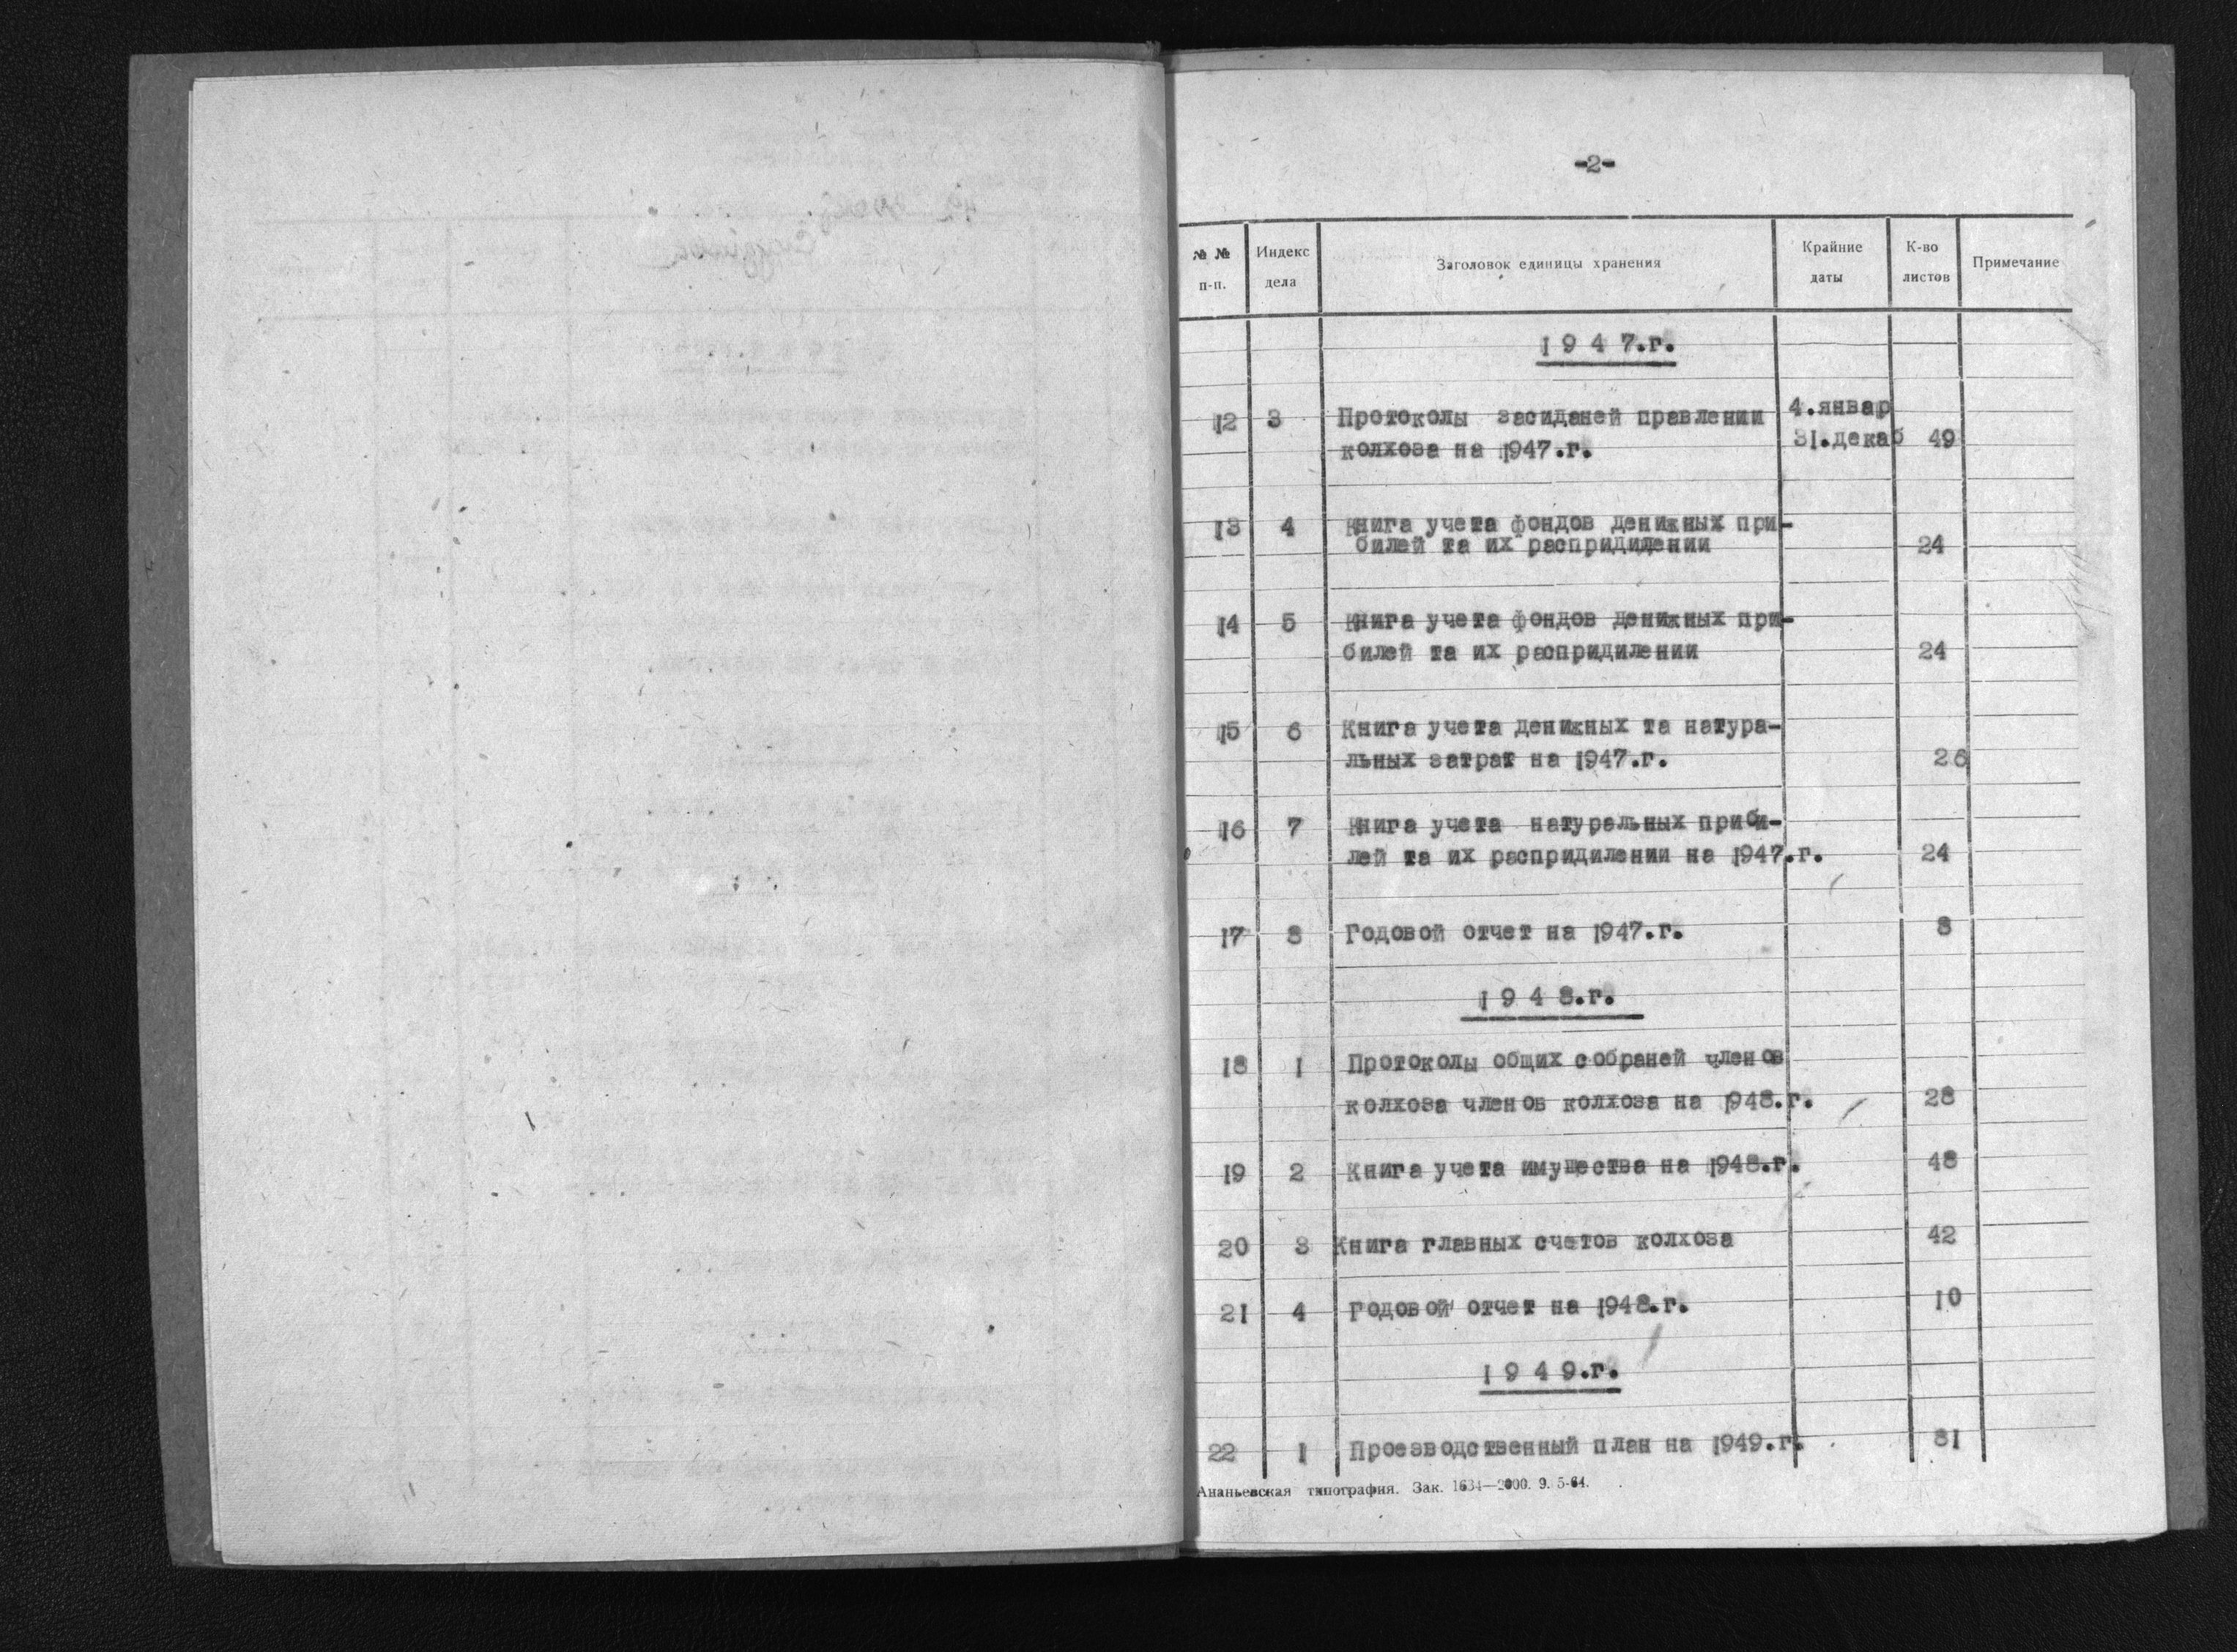 -2-
№ № п-п. Индекс дела Заголовок единицы хранения Крайние даты К-во листов Примечание
1 9 4 7.г.
12 3 Протоколы засиданей правлении 4.январ
колхоза на 1947.г. 31.декаб 49
13 4 Книга учета фондов денижных при-
билей та их распридилении 24
14 5 Книга учета фондов денижных при-
билей та их распридилении 24
15 6 Книга учета денижных та натура-
льных затрат на 1947.г. 26
16 7 Книга учета натуральных приби-
лей та их распридилении на 1947.г. 24
17 8 Годовой отчет на 1947.г. 8
1 9 4 8.г.
18 1 Протоколы общих собраней членов
колхоза членов колхоза на 1948.г. 28
19 2 Книга учета имущества на 1948.г. 48
20 3 Книга главных счетов колхоза 42
21 4 Годовой отчет на 1948.г. 10
1 9 4 9.г.
22 1 Проезводственный план на 1949.г. 31
Ананьевская типография. Зак. 1634—2000. 9. 5-64.